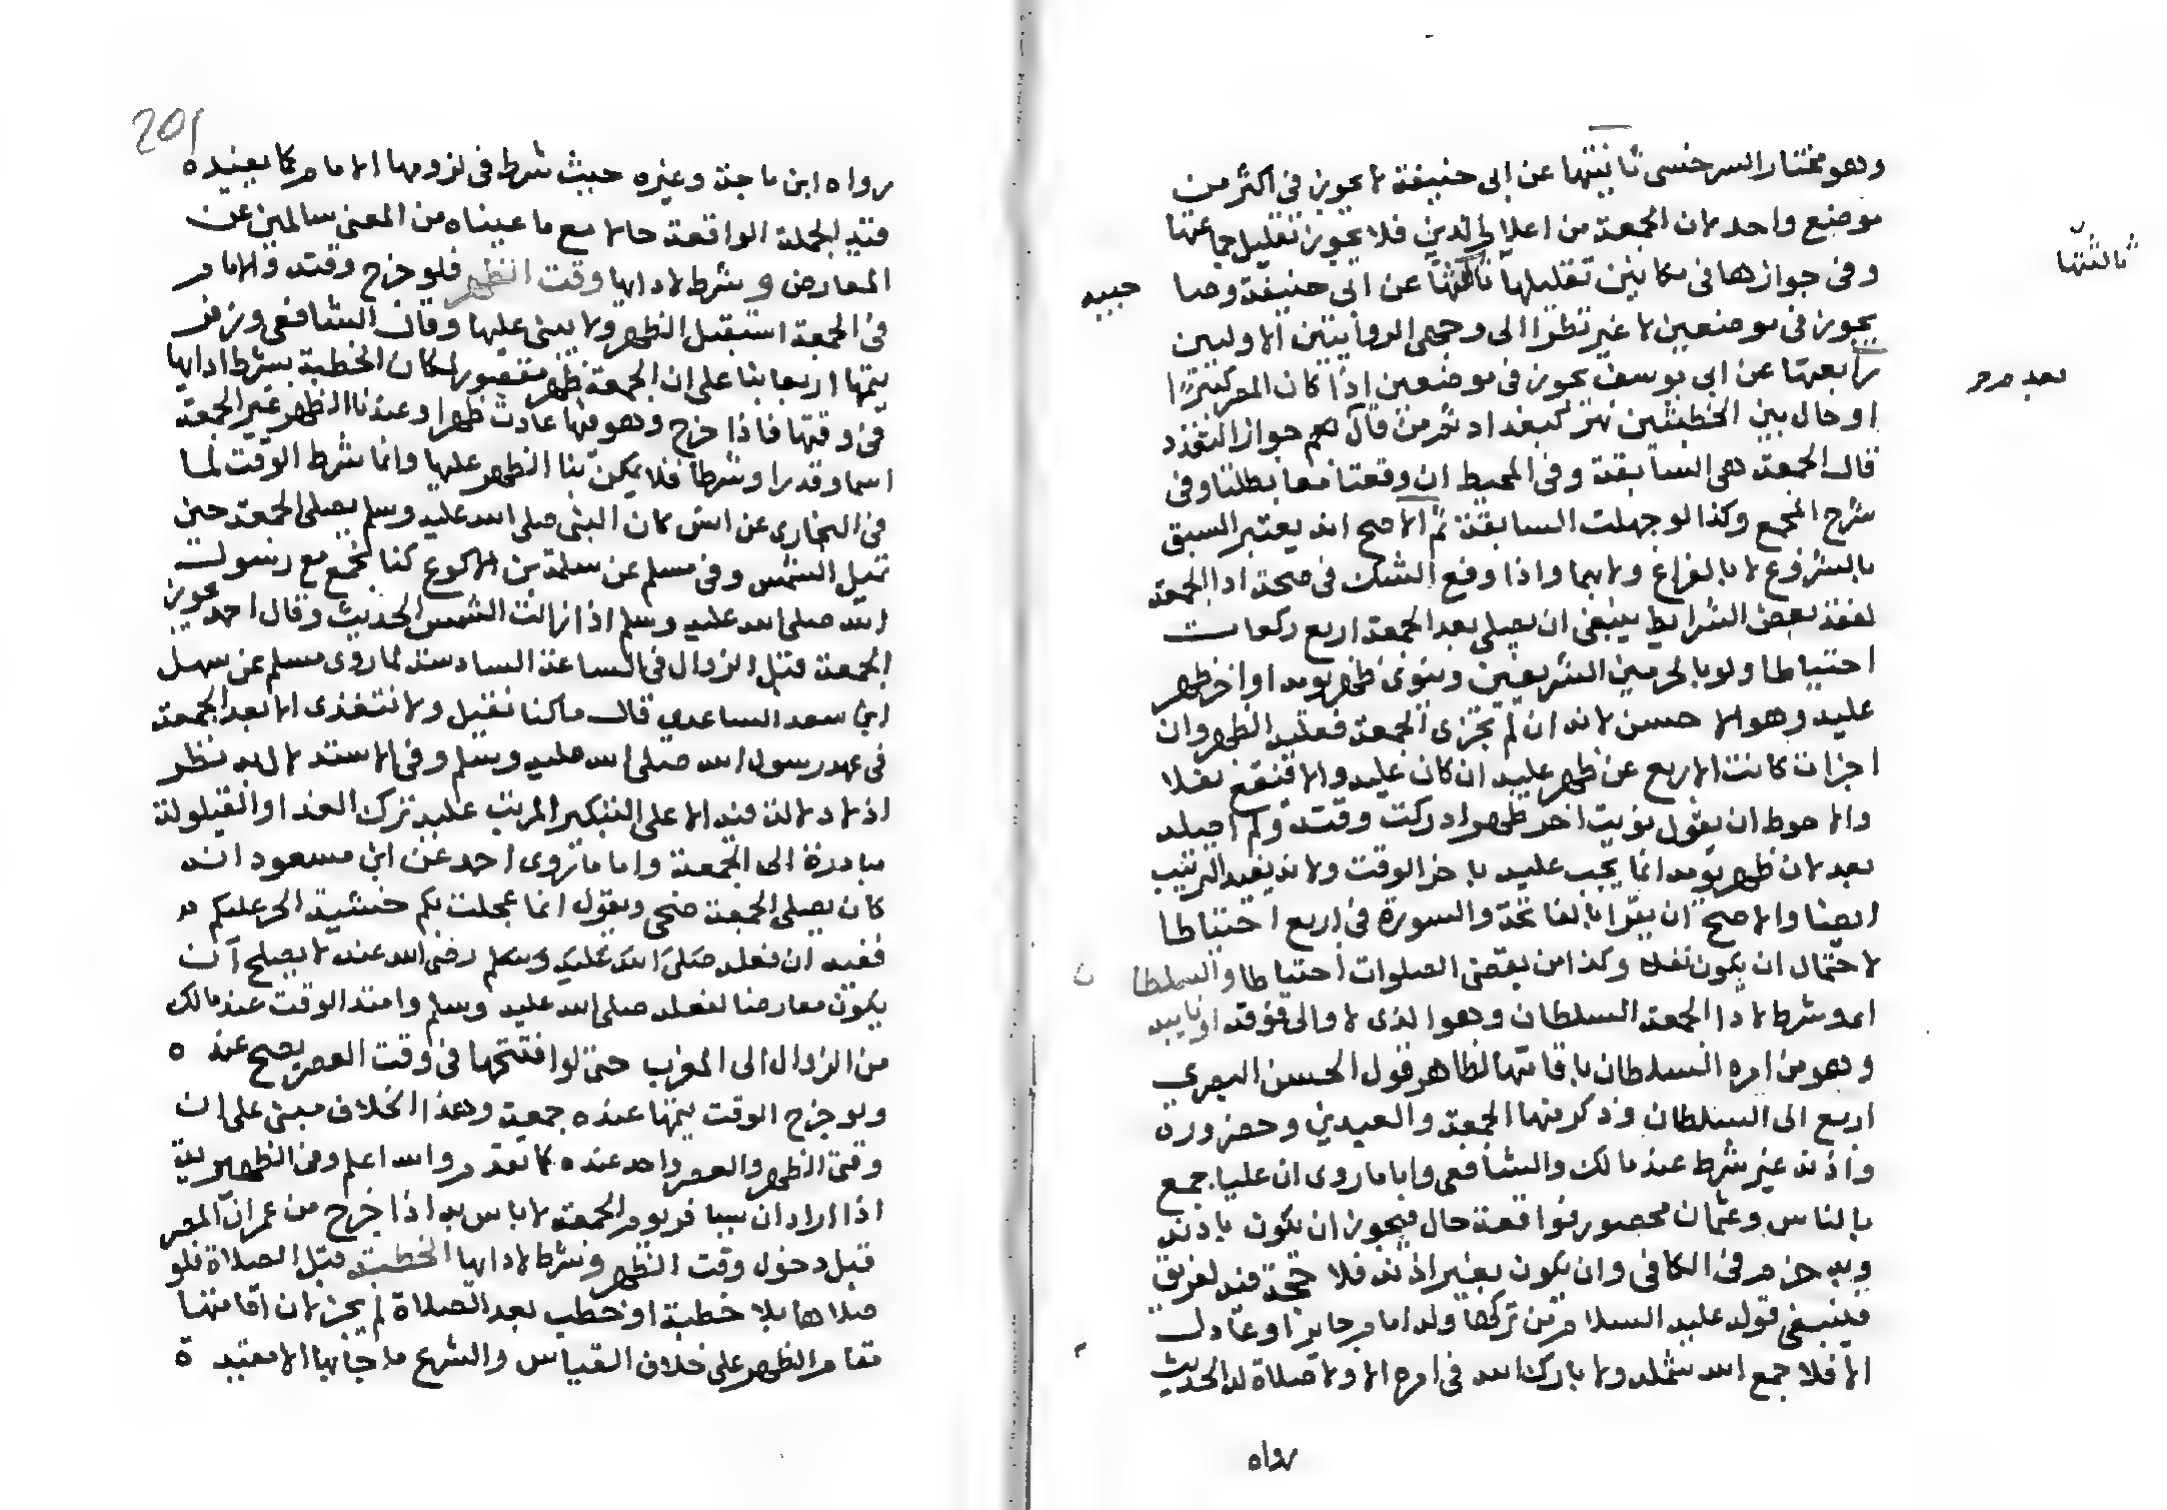 وهو مختار السرخسى ثانيتها عن ابى حنيفة لا يجوز فى اكثر من
موضع واحد لان الجمعة من اعلام الدين فلا يجوز تقليل جماعتها
وفى جوازها فى مكانين تقليلها ثالثتها عن ابى حنيفة وصا حبيه
يجوز فى موضعين لا غير نظرا الى وجهى الروايتين الاوليين
رابعتها عن ابى يوسف يجوز فى موضعين اذا كان المصر كبيرا
او حال بين الخطبتين نهر كبغداد ثم من قال بعدم جواز التعدد
قال الجمعة هى السابقة وفى المحيط ان وقعتا معا بطلتا وفى
شرح المجمع وكذا لو جهلت السابقة ثم الاصح انه يعتبر السبق
بالشروع لا بالفراغ ولا بهما واذا وقع الشك فى صحة ادا الجمعة
لفقد بعض الشرايط ينبغى ان يصلى بعد الجمعة اربع ركعات
احتياطا ولو بالحرمين الشريفين وينوى ظهر يومه او اخر ظهر
عليه وهو الاحسن لانه ان لم تجزى الجمعة فعليه الظهر وان
اجزات كانت الاربع عن ظهر عليه ان كان عليه والا فتقع نفلا
والاحوط ان يقول نويت اخر ظهر ادركت وقته ولم اصله
بعد لان ظهر يومه انما يجب عليه باخر الوقت ولانه يفيد الترتيب
ايضا والاصح ان يقرا بالفاتحة والسورة فى اربع احتياطا
لاحتمال ان يكون نفلا وكذا من يقضى الصلوات احتياطا والسلطان
اى وشرط لادا الجمعة السلطان وهو الذى لا والى فوقه او نايبه
وهو من امره السلطان باقامتها لظاهر قول الحسن البصرى
اربع الى السلطان وذكر منها الجمعة والعيدين وحضروره
واذنه غير شرط عند مالك والشافعى واما ما روى ان عليا جمع
بالناس وعثمان محصور فواقعة حال فيجوز ان يكون باذنه
وبه جزم فى الكافى وان يكون بغير اذنه فلا حجة فيه لفريق
فينبغى قوله عليه السلام من تركها وله امام جاير او عادل
الا فلا جمع الله شمله ولا بارك الله فى امره الا ولا صلاة له الحديث
رواه
ثالثتها
بعدم
201
رواه ابن ماجة وغيره حيث شرط فى لزومها الامام كما يفيده
قيد الجملة الواقعة حالا مع ما عيناه من المعنى سالمين عن
المعارض وشرط لادايها وقت الظهر فلو خرج وقته والامام
فى الجمعة استقبل الظهر ولا يبنى عليها وقال الشافعى وزفر
يتمها اربعا بنا على ان الجمعة ظهر مقصور لمكان الخطبة بشرط ادايها
فى وقتها فاذا خرج وهو فيها عادت ظهرا وعندنا الظهر غير الجمعة
اسما وقدرا وشرطا فلا يمكن بنا الظهر عليها وانما شرط الوقت لما
فى البخارى عن انس كان النبى صلى الله عليه وسلم يصلى الجمعة حين
تميل الشمس وفى مسلم عن سلمة بن الاكوع كنا نجمع مع رسول
الله صلى الله عليه وسلم اذا زالت الشمس الحديث وقال احمد يجوز
الجمعة قبل الزوال فى الساعة السادسة لما روى مسلم عن سهل
ابن سعد الساعدى قال ما كنا نقيل ولا نتغذى الا بعد الجمعة
فى عهد رسول الله صلى الله عليه وسلم وفى الاستدلال به نظر
اذ لا دلالة فيه الا على التبكير المرتب عليه ترك الغدا والقيلولة
مبادرة الى الجمعة واما ما روى احمد عن ابن مسعود انه
كان يصلى الجمعة ضحى ويقول انما عجلت بكم خشية الحر عليكم
ففيه ان فعله صلى الله عليه وسلم رضى الله عنه لا يصلح ان
يكون معارضا لفعله صلى الله عليه وسلم وامتد الوقت عند مالك
من الزوال الى المغرب حتى لو افتتحها فى وقت العصر يصح عنده
ولو خرج الوقت يتمها عنده جمعة وهذا الخلاف مبنى على ان
وقتى الظهر والعصر واحد عنده كما تقدم والله اعلم وفى الظهيرية
اذا اراد ان يسافر يوم الجمعة لا باس به اذا خرج من عمران المصر
قبل دخول وقت الظهر وشرط لادايها الخطبة قبل الصلاة فلو
صلاها بلا خطبة او خطب بعد الصلاة لم يجز لان اقامتها
مقام الظهر على خلاف القياس والشرع ما جا بها الا مقيد ة